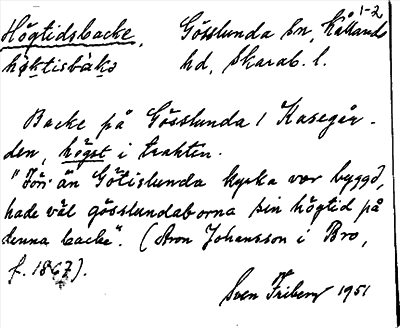 1-2
Högtidsbacke, Gösslunda sn, Kållands
høktisbakə hd, Skarab. l.
Backe på Gösslunda 1 Kasegår-
den, högst i trakten.
"Förr än Götislunda kyrka var byggd,
hade väl gösslundaborna sin högtid på
denna backe". (Aron Johansson i Bro,
f. 1867).
Sven Friberg 1951